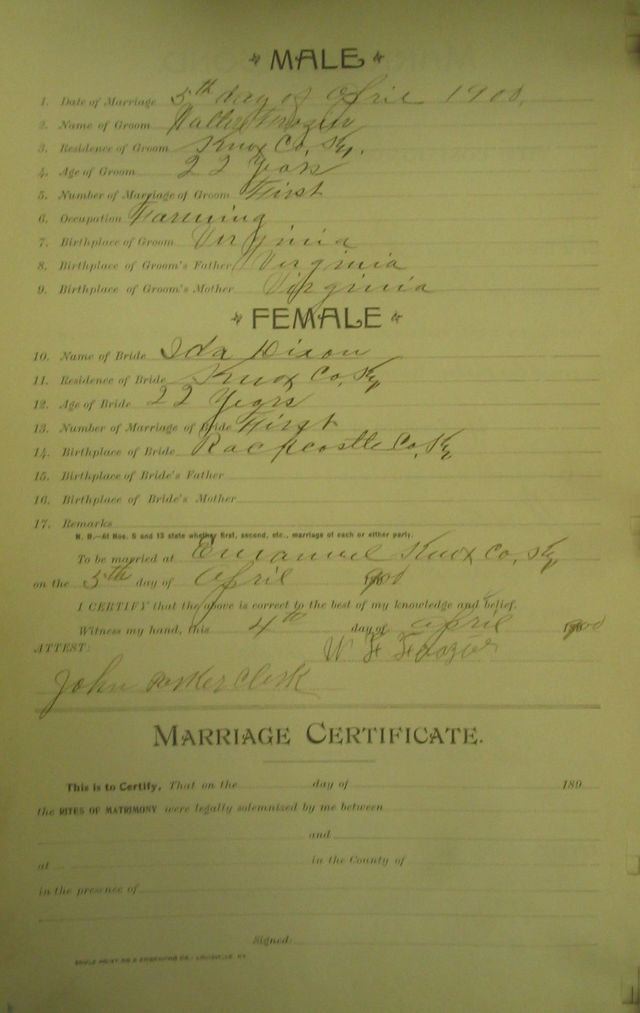 MALE
1. Date of Marriage 5th day of April 1900,
2. Name of Groom Walter Frazier
3. Residence of Groom Knox Co, Ky.
4. Age of Groom 22 Years
5. Number of Marriage of Groom First
6. Occupation Farming
7. Birthplace of Groom Virginia
8. Birthplace of Groom's Father Virginia
9. Birthplace of Groom's Mother Virginia
FEMALE
10. Name of Bride Ida Dixon
11. Residence of Bride Knox Co, Ky
12. Age of Bride 22 Years
13. Number of Marriage of Bride First
14. Birthplace of Bride Rockcastle Co, Ky
15. Birthplace of Bride's Father
16. Birthplace of Bride's Mother
17. Remarks
N. B.—At Nos. 5 and 13 state whether first, second, etc., marriage of each or either party.
To be married at Emanuel Knox Co, Ky
on the 5th day of April 1900
I CERTIFY that the above is correct to the best of my knowledge and belief.
Witness my hand, this 4th day of April 1900
ATTEST: W F Frazier
John Parker Clerk
MARRIAGE CERTIFICATE.
This is to Certify, That on the day of 189
the RITES OF MATRIMONY were legally solemnized by me between
and
at in the County of
in the presence of
Signed:
PRINTING & ENGRAVING CO., LOUISVILLE, KY.